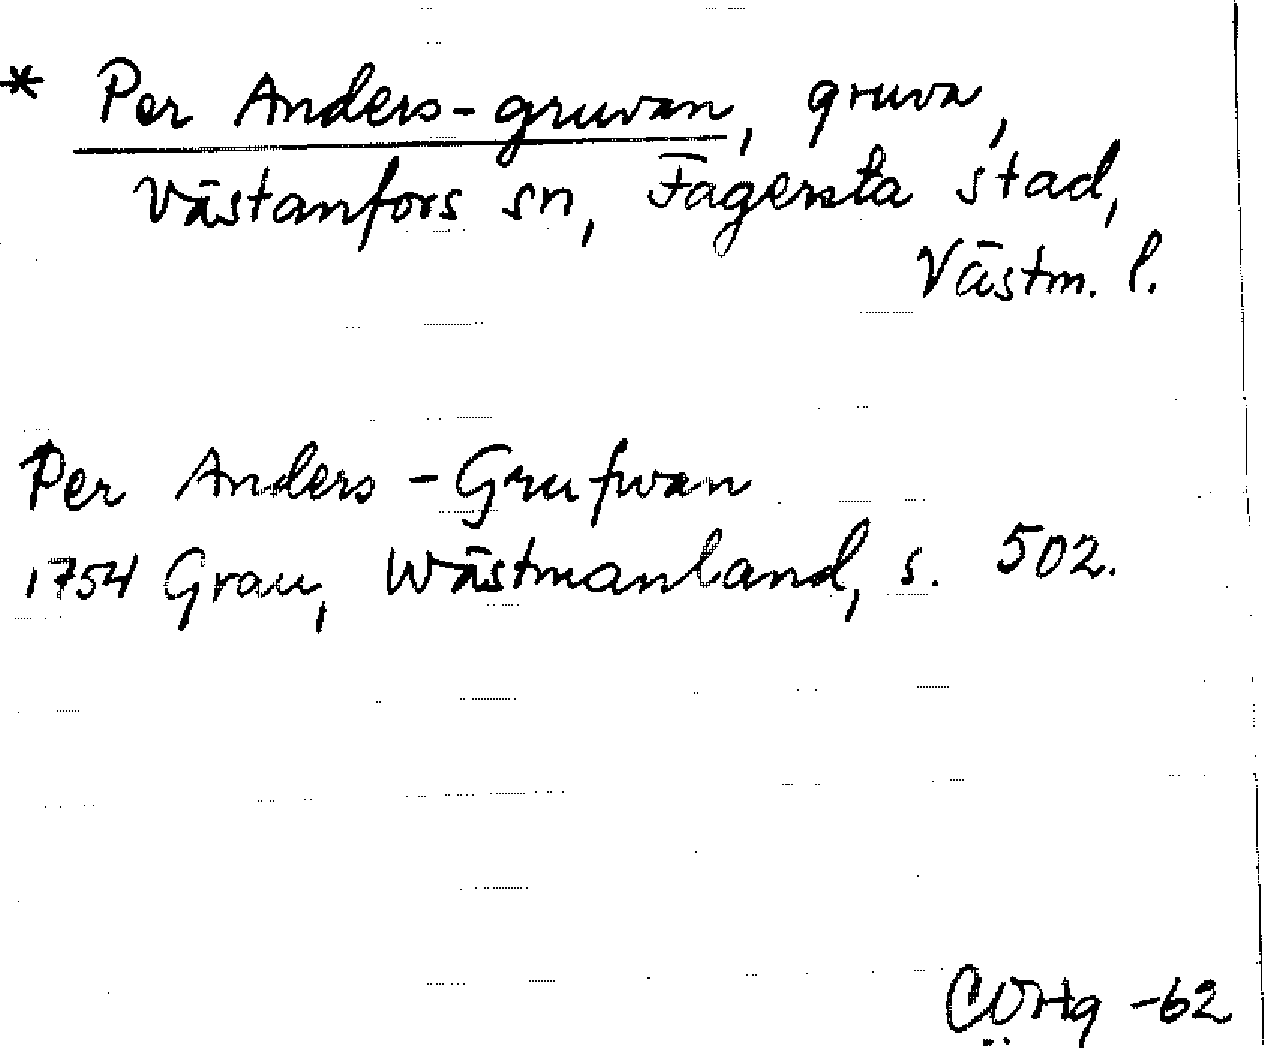 * Per Anders-gruvan, gruva,
Västanfors sn, Fagersta stad,
Västm. l.
Per Anders-Grufwan
1754 Grau, Wästmanland, s. 502.
-62